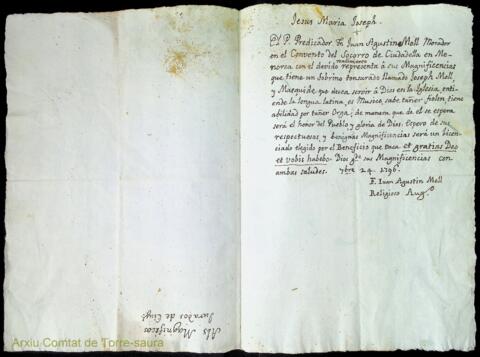 Jesus Maria Joseph.
El P. Predicador Fr. Juan Agustin Moll Morador
en el Convento del Socorro de Ciudadella en Me-
norca con el devido rendimiento representa á sus Magnificencias
que tiene un Sobrino tonsurado llamado Joseph Moll,
y Marquide que desea servir á Dios en la Iglesia, enti-
ende la lengua latina, es Musico, sabe tañer fiolin, tiene
abilidad por tañer Orga; de manera que de el se espera
será el honor del Pueblo y gloria de Dios. Espero de sus
respectuosos, y benignas Magnificencias será un licen-
ciado elegido por el Beneficio que vaca et gratias Deo
et vobis habebo. Dios gde sus Magnificencias con
ambas saludes. 7bre 24 1796.
F. Juan Agustin Moll
Religioso Aug.o
Als Magnifichs
Jurados de
Arxiu Comtat de Torre-saura